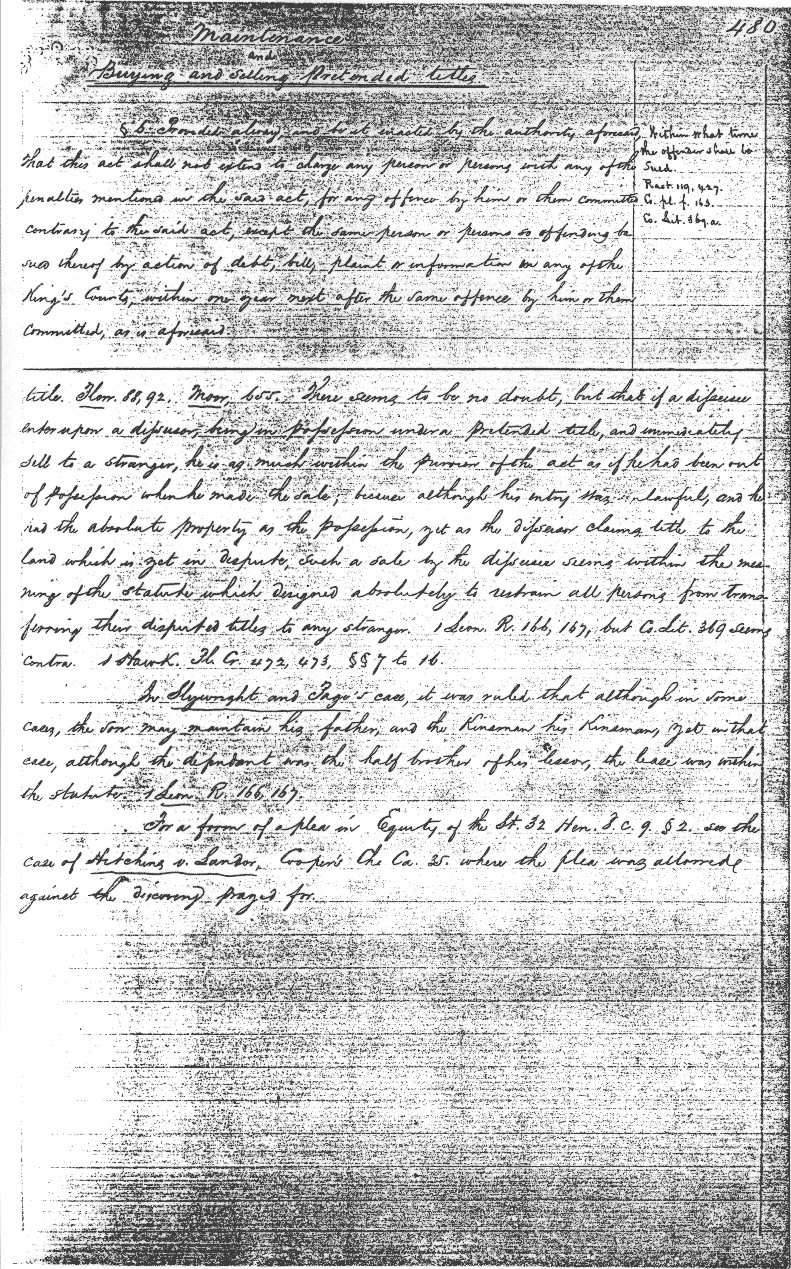 480
Maintenance
and
Buying and selling Pretended titles
§ 6. Provided alway, and be it enacted by the authority aforesaid,
that this act shall not extend to charge any person or persons with any of the
penalties mentioned in the said act, for any offence by him or them committed
contrary to the said act, except the same person or persons so offending be
sued thereof by action of debt, bill, plaint or information in any of the
King's Courts, within one year next after the same offence by him or them
committed, as is aforesaid.
Within what time
the offender shall be
Sued.
Rast. 119, 427.
Co. pl. f. 163.
Co. Lit. 369. a.
title. Plow. 88, 92. Moor, 655. There seems to be no doubt, but that if a disseisee
enter upon a disseisor, being in possession under a pretended title, and immediately
sell to a stranger, he is as much within the purview of the act as if he had been out
of possession when he made the sale; because although his entry was lawful, and he
had the absolute property as the possession, yet as the disseisor claims title to the
land which is yet in dispute, such a sale by the disseisee seems within the mea-
ning of the statute which designed absolutely to restrain all persons from trans-
ferring their disputed titles to any stranger. 1 Leon. R. 166, 167, but Co. Lit. 369 seems
contra. 1 Hawk. Pl. Cr. 472, 473, §§ 7 to 16.
In Slywright and Page's case, it was ruled that although in some
cases, the son may maintain his father, and the Kinsman his Kinsman, yet in that
case, although the defendant was the half brother of his lessor, the lease was within
the statute. 1 Leon. R. 166, 167.
For a form of a plea in Equity of the St. 32 Hen. 8. c. 9. § 2. see the
case of Hitchins v. Lander, Cooper's Ch. Ca. 35. where the plea was allowed
against the discovery prayed for.